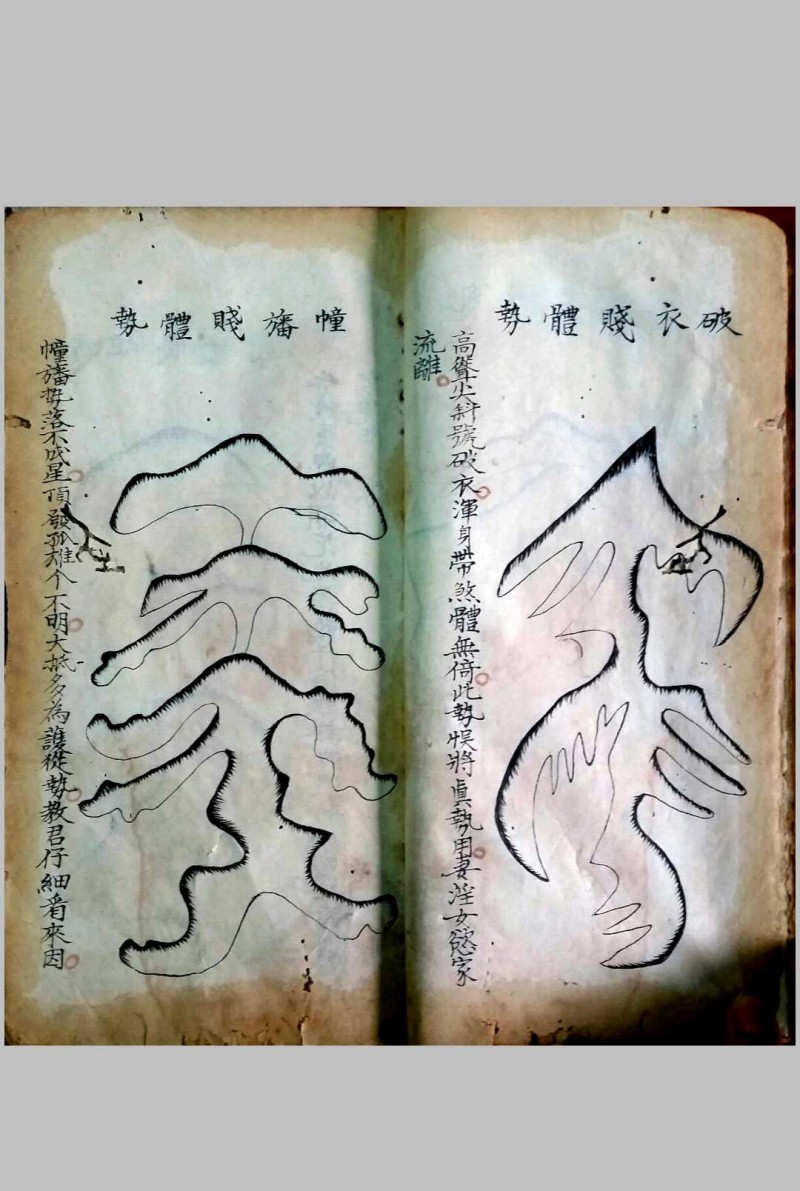 破衣賤體勢
高聳尖斜號破衣渾身帶煞體無倚此勢悞將真執用妻淫女慾家
流離
幢旛賤體勢
幢旛勢落不成星頂發孤雄个不明大抵多為護從勢教君仔細看來因